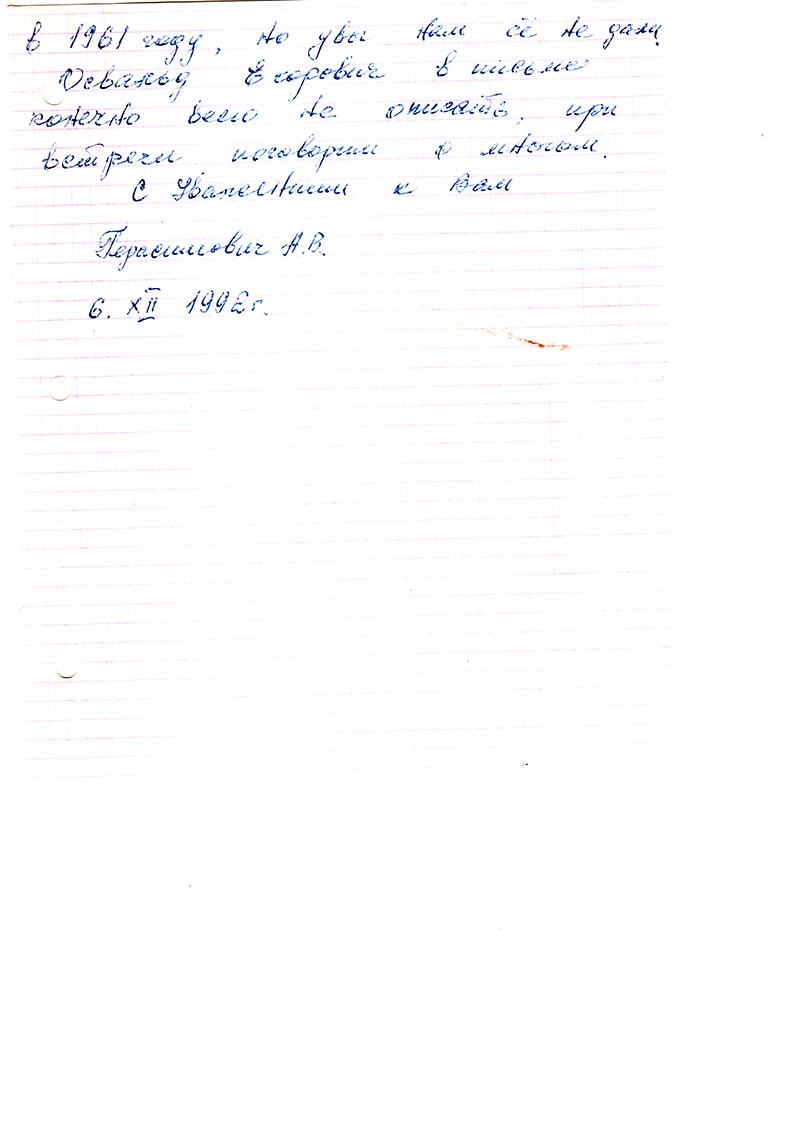 в 1961 году, но увы нам её не дали
Освальд Егорович в письме
конечно всего не описать, при
встречи поговорим о многом.
С Уважением к Вам
Герасимович А.В.
6. XII 1992г.